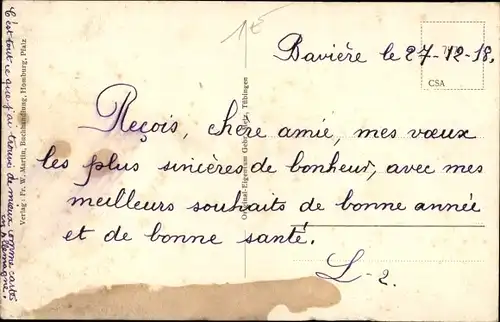 1€
Bavière le 27-12-18.
CSA
Reçois, chère amie, mes vœux
les plus sincères de bonheur, avec mes
meilleurs souhaits de bonne année
et de bonne santé.
L-2.
C'est tout ce que j'ai trouvé de mieux comme cartes
en Allemagne.
Verlag: Fr. W. Martin, Buchhandlung, Homburg, Pfalz
Original-Eigentum Gebr. Metz, Tübingen